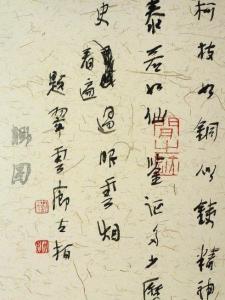 柯枝如铜似鐵精神
泰若如仙鉴证多少歷
史看遍過眼雲烟
題翠雲廊古柏